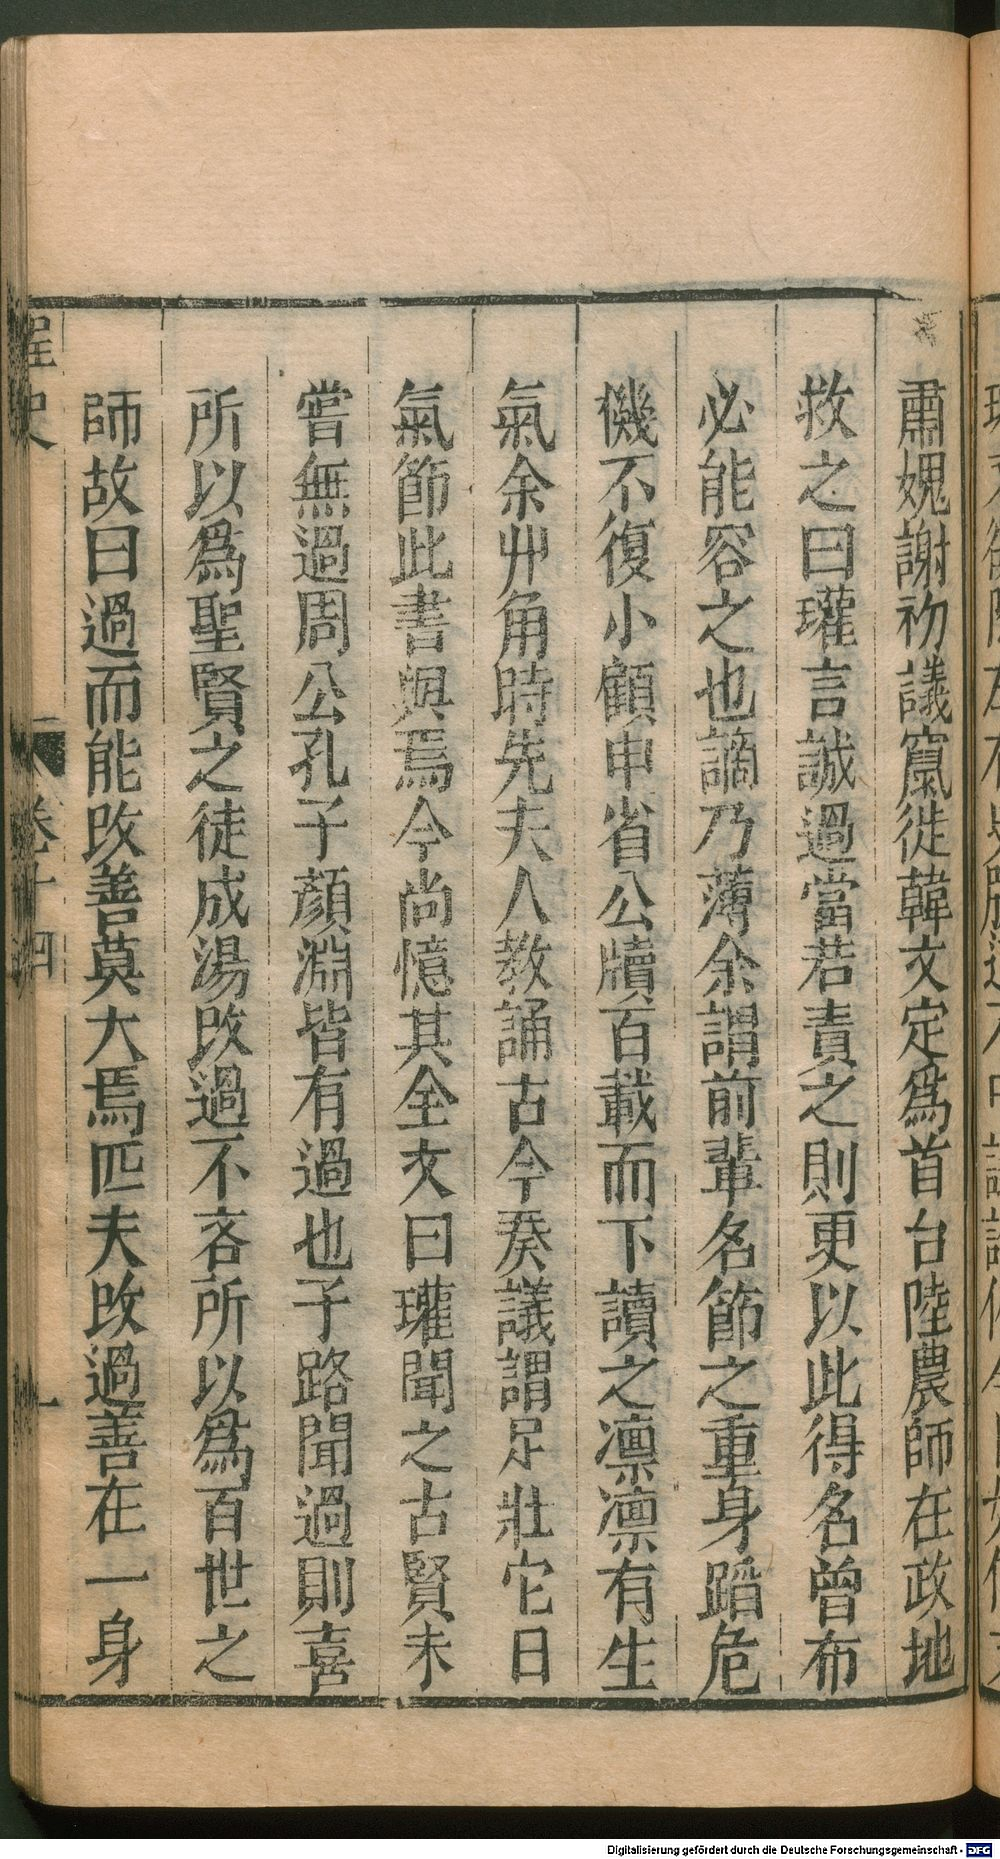 肅媿謝初議竄徙韓文定爲首台陸農師在政地
救之曰瓘言誠過當若責之則更以此得名曾布
必能容之也謫乃薄余謂前輩名節之重身蹈危
機不復小顧申省公牘百載而下讀之凛凛有生
氣余丱角時先夫人教誦古今奏議謂足壯它日
氣節此書與焉今尚憶其全文曰瓘聞之古賢未
嘗無過周公孔子顔淵皆有過也子路聞過則喜
所以爲聖賢之徒成湯改過不吝所以爲百世之
師故曰過而能改善莫大焉匹夫改過善在一身
桯史
卷十四
Digitalisierung gefördert durch die Deutsche Forschungsgemeinschaft - DFG